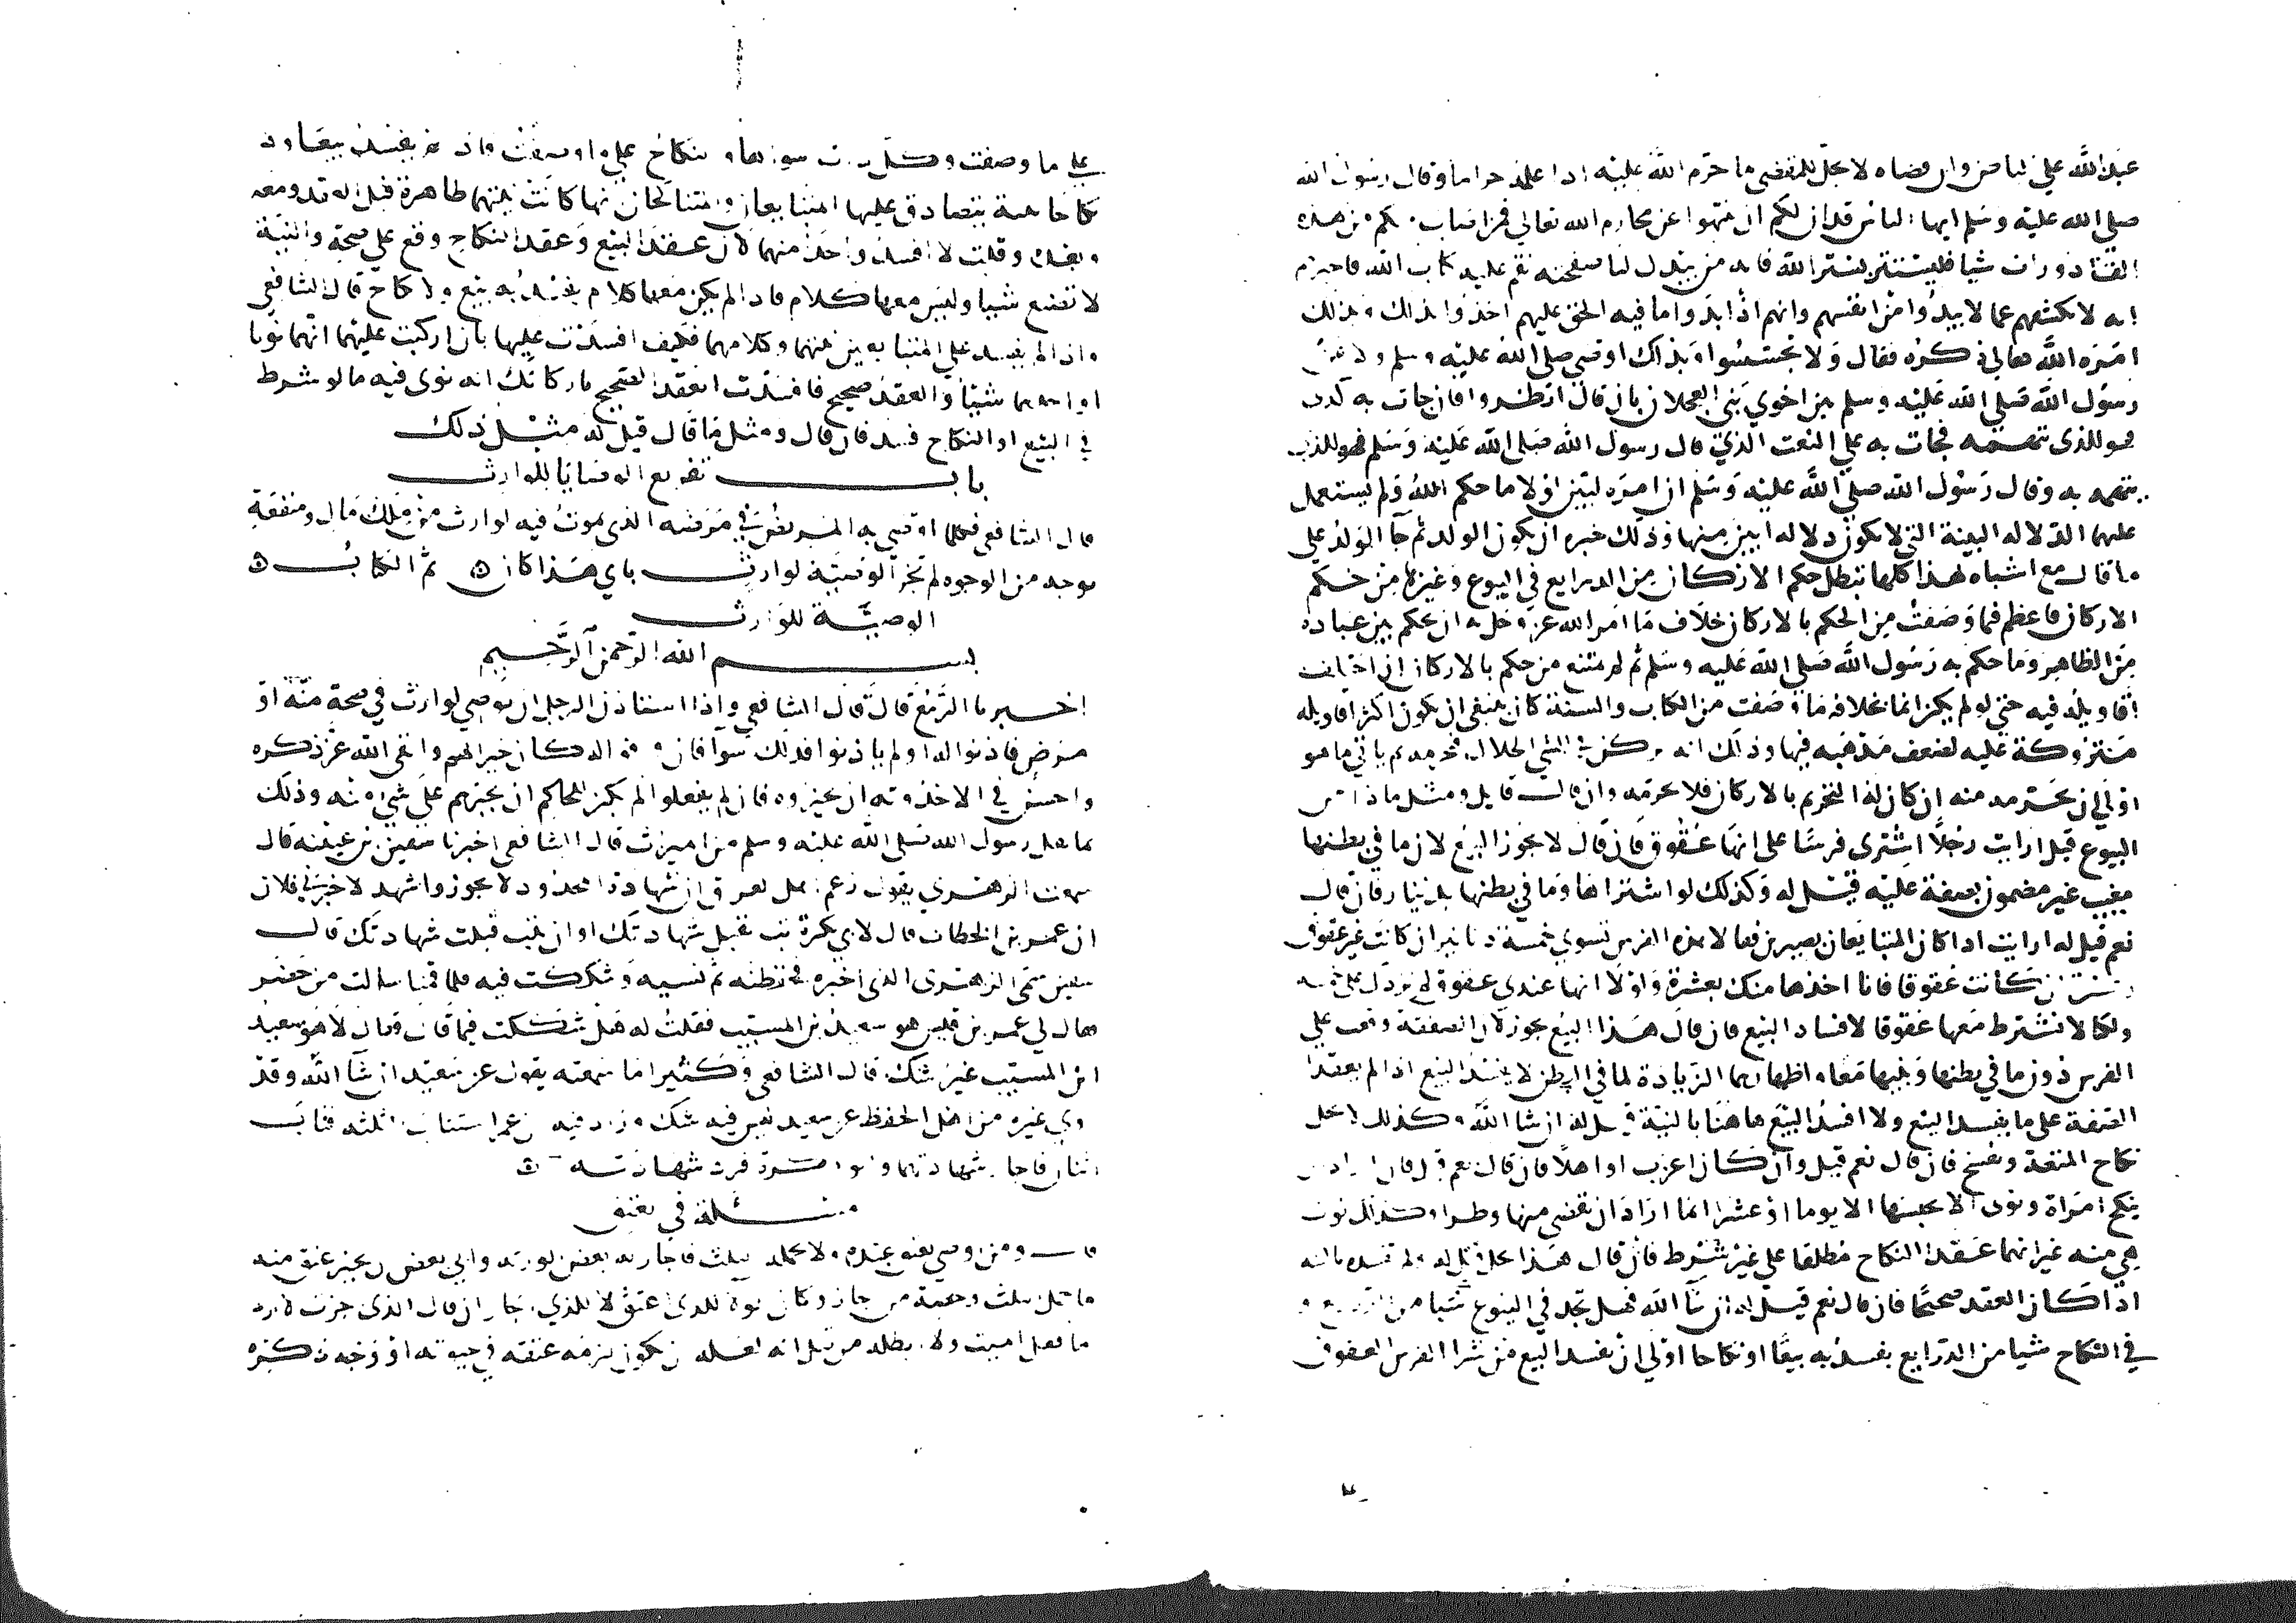 عبد الله علي الباطن وان قضاه لا يحل للمقضي ما حرم الله عليه اذا علمه حراما وقال رسول الله
صلي الله عليه وسلم ايها الناس قد ان لكم ان تنتهوا عن محارم الله تعالي فمن اصاب منكم من هذه
القاذورات شيا فليستتر بستر الله فانه من يبدل لنا صفحته نقم عليه كتاب الله فاخبرهم
انه لا يكشفهم عما لا يبدوا من انفسهم وانهم اذا ابدوا ما فيه الحق عليهم اخذوا بذلك وبذلك
امره الله تعالي ذكره فقال ولا تجسسوا وبذلك اوصي صلي الله عليه وسلم ولا عن
رسول الله صلي الله عليه وسلم بين اخوي بني العجلان بان قال انظروا فان جات به كذا
فهو للذي تتهمه فجات به علي النعت الذي قال رسول الله صلي الله عليه وسلم فهو للذي
يتهمه به وقال رسول الله صلي الله عليه وسلم ان امره لبين لولا ما حكم الله ولم يستعمل
عليهما الدلاله البينة التي لا يكون دلاله ابين منها وذلك خبره ان يكون الولد ثم جآ الولد علي
ما قال مع اشباه لهذا كلها تبطل حكم الازكان من الدرايع في البيوع وغيرها من حكم
الازكان فاعظم فما وصفت من الحكم بالازكان خلاف ما امر الله عز وجل به ان يحكم بين عباده
من الظاهر وما حكم به رسول الله صلي الله عليه وسلم ثم لم يمتنع من حكم بالازكان ان اختلفت
اقاويله فيه حتي لو لم يكن اثما بخلافه ما وصفت من الكتاب والسنة كان ينبغي ان يكون اكثر اقاويله
متروكة عليه لضعف مذهبه فيها وذلك انه يركن في الشي الحلال فيحرمه ثم ياتي ما هو
اولي ان يحرمه منه ان كان له التحريم بالازكان فلا يحرمه وان قال قايل ومثل ماذا من
البيوع قيل ارايت رجلا اشتري فرسا علي انها عقوق فان قال لا يجوز البيع لان ما في بطنها
مغيب غير مضمون بصفة عليه قيل له وكذلك لو اشتراها وما في بطنها بدنينار فان قال
نعم قيل له ارايت اذا كان المتبايعان بصيرين فقالا هذه الفرس تسوي خمسة دنانير ان كانت غير عقوق
وعشرة ان كانت عقوقا فانا اخذها منك بعشرة ولولا انها عندي عقوق لم ازدك علي خمسة
ولكنا لا نشترط معها عقوقا لافساد البيع فان قال هذا البيع يجوز لان الصفقة وقعت علي
الفرس دون ما في بطنها ونيتهما معا واظهارهما الزيادة لما في البطن لا يفسد البيع اذا لم يعقدا
الصفقة علي ما يفسد البيع ولا افسد البيع هاهنا بالنية قيل له ان شا الله وكذلك لا يحل
نكاح المتعة ويفسخ فان قال نعم قيل وان كان اعزب او اهلا فان قال نعم قيل فان اراد ان
ينكح امراة ونوي الا يحبسها الا يوما او عشرا انما اراد ان يقضي منها وطرا وكذلك نوت
هي منه غير انهما عقدا النكاح مطلقا علي غير شرط فان قال هذا يحل قيل له ولم تفسده بالنية
اذا كان العقد صحيحا فان قال نعم قيل له ان شآ الله فهل تجد في البيوع شيا من الدرايع و
في النكاح شيا من الدرايع يفسد به بيعا او نكاحا اولي ان يفسد البيع من شرا الفرس العقوق
علي ما وصفت وكل ذات سواها والنكاح علي ما وصفت فاذا لم يفسد بيعا ولا
نكاحا بنية يتصادق عليها المتبايعان والمتناكحان ايها كانت نيتهما ظاهرة قبل العقد ومعه
وبعده وقلت لا افسد واحدا منهما لان عقد البيع وعقد النكاح وقع علي صحة والنية
لا تصنع شيا وليس معها كلام فاذا لم يكن معها كلام يفسد به بيع ولا نكاح قال الشافعي
واذا لم يفسد علي المتبايعين نيتهما وكلامهما فكيف افسدت عليها بان ازكنت عليهما انهما نويا
او احدهما شيئا والعقد صحيح فافسدت العقد الصحيح بازكانك انه نوي فيه ما لو شرط
في البيع او النكاح فسد فان قال ومثل ما قال قيل له مثل ذلك
باب تفريع الوصايا للوارث
قال الشافعي فكلما اوصي به المريض في مرضه الذي يموت فيه لوارث من ملك مال ومنفعة
بوجه من الوجوه لم تجز الوصية لوارث باي هذا كان ۞ تم الكتاب ۞
الوصية للوارث
بسم الله الرحمن الرحيم
اخبرنا الربيع قال قال الشافعي واذا استاذن الرجل ان يوصي لوارث في صحة منه او
مرض فاذنوا له او لم ياذنوا فذلك سوآ فان وفوا له كان خيرا لهم واتقي الله عز ذكره
واحسن في الاحدوثه ان يجيزوه فان لم يفعلوا لم يكن للحاكم ان يجبرهم علي شي منه وذلك
بما نقل رسول الله صلي الله عليه وسلم من الميرث قال الشافعي اخبرنا سفين بن عيينه قال
سمعت الزهري يقول زعم اهل العراق ان شهادة المحدود لا يجوز واشهد لاخبرني فلان
ان عمر بن الخطاب قال لابي بكرة تب تقبل شهادتك او ان تتب قبلت شهادتك قال
سفين سمي الزهري الذي اخبره فحفظته ثم نسيته وشككت فيه فلما قمنا سالت من حضر
فقال لي عمر بن قيس هو سعيد بن المسيب فقلت له هل شككت فيما قال فقال لا هو سعيد
ابن المسيب غير شك قال الشافعي وكثيرا ما سمعته يقول عن سعيد ان شآ الله وقد
روي غيره من اهل الحفظ عن سعيد ليس فيه شك وزاد فيه ان عمر استتاب الثلثه فتاب
اثنان فاجاز شهادتهما وابو بكرة فرد شهادته ۞
مسئلة في العتق
قال ومن اوصي بعتق عبده ولا يحمله الثلث فاجاز له بعض الورثه وابي بعض ان يجيز عتق منه
ما حمل الثلث وحصة من اجاز وكان الولا للذي اعتق لا للذي اجاز ان قال الذي اجزت لا ارد
ما فعل الميت ولا ابطله من قبل انه لعله ان يكون لزمه عتقه في حيوته او وجه ذكره